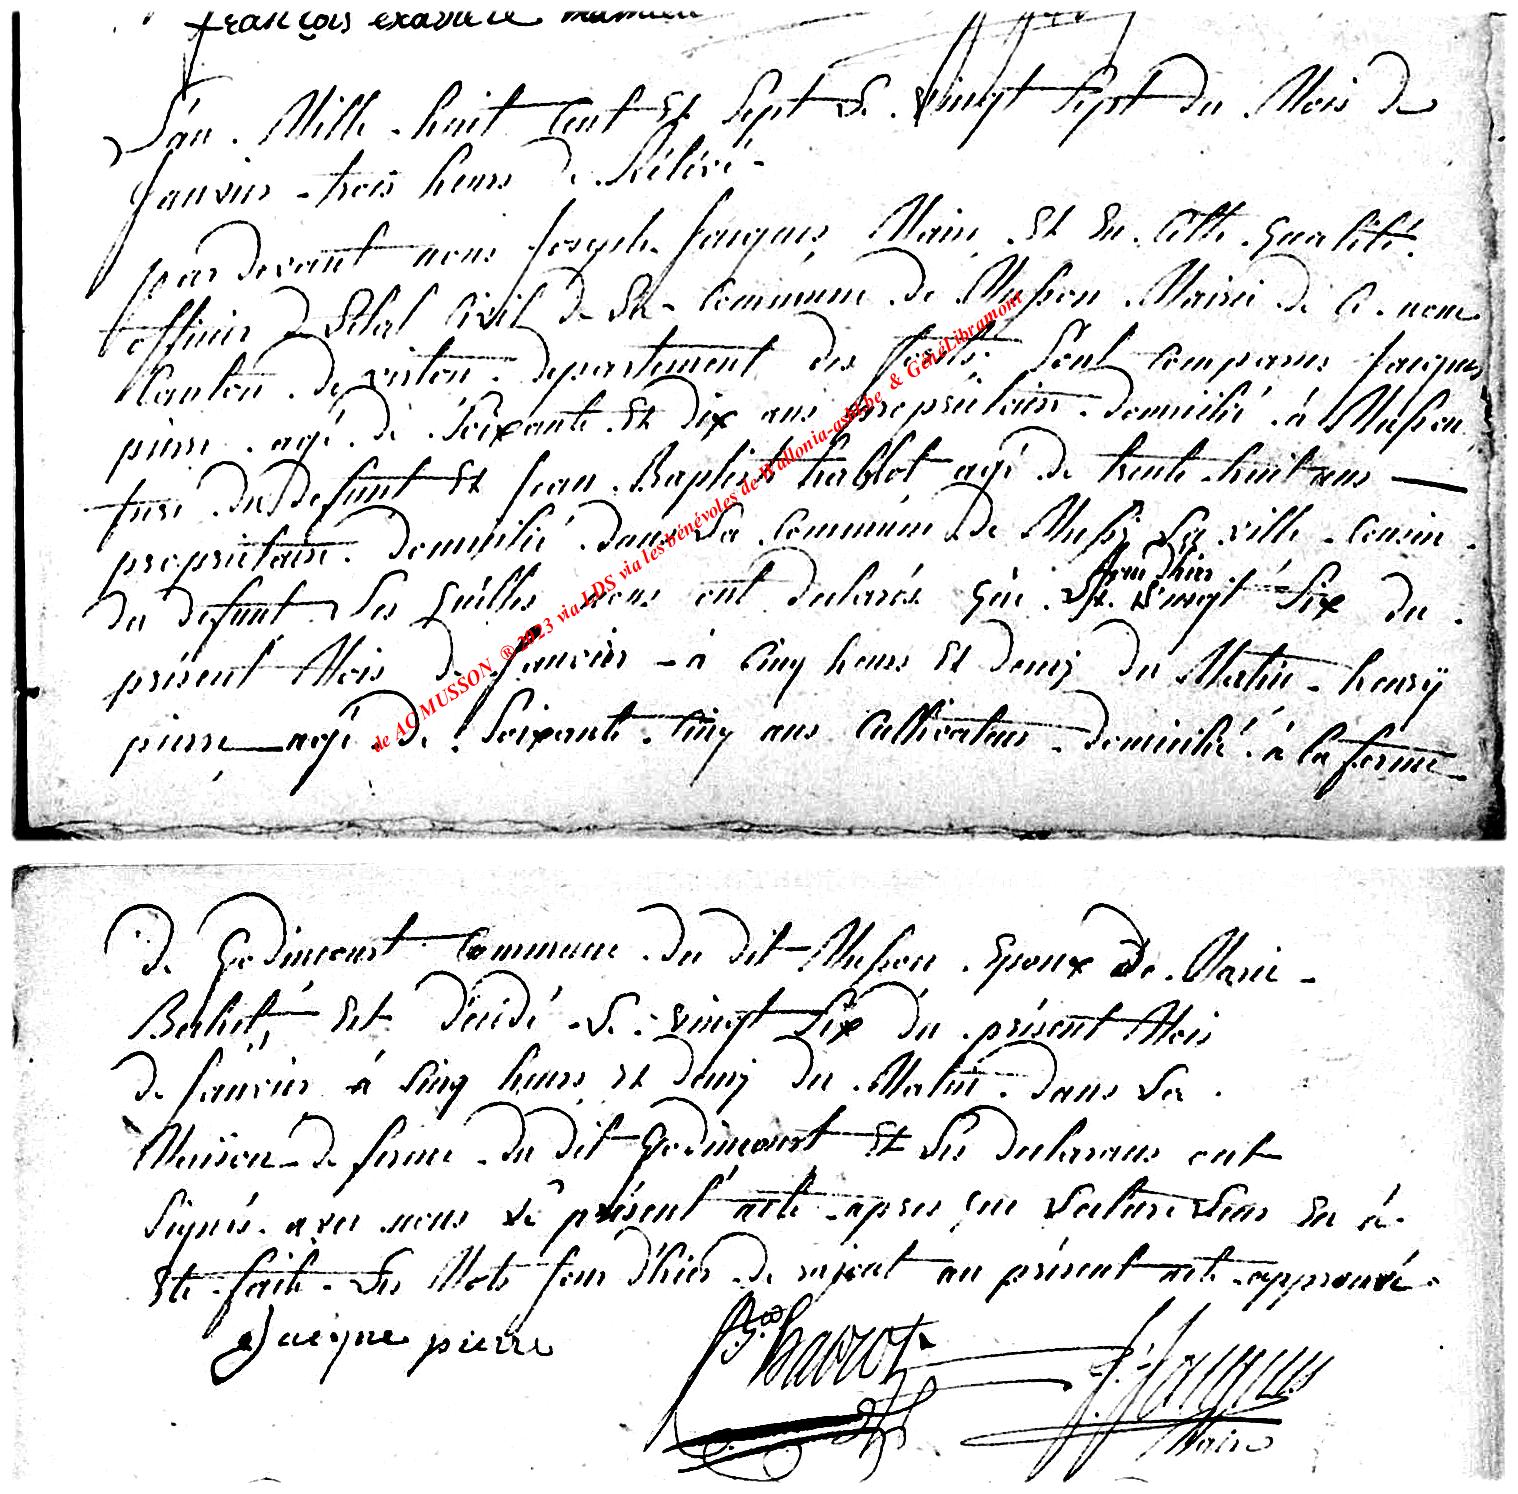 françois exaviere
L'an Mille huit Cent Et Sept Le vingt Sept du Mois de
Janvier trois heurs de Rélévé
par Devant nous Joseph Jacques Maire Et En Cette qualité
officier de L'Etat Civil de La Commune de Musson Mairie de Ce nom
Canton de virton departement des forêts Sont Comparus Jacques
pierre agé de Soixante Et Dix ans propriétaire domicilié à Musson
frere du Defunt Et Jean Baptiste agé de trente huit ans
propriétaire domicilié dans La Commune de Mussy La ville Cousin
du defunt Les quelles nous ont déclarés que Le vingt Six du
Jour d'hier
présent Mois de Janvier à Cinq heurs Et demij du Matin henrÿ
pierre agé de Soixante Cinq ans Cultivateur domicilié à la ferme
de Godincourt Commune du dit Musson Epoux de Marie
Est Décidé Le vingt Six du présent Mois
de Janvier à Cinq heurs Et demij du Matin dans La
Maison de ferme du dit Godincourt Et Les declarans ont
Signés avec nous Le présent acte apres que Lecture Leur En à
Ete faite Les Mots Jour d'hier de rajout au présent acte approuvé
Jacque pierre
J. Jacques
Maire
de AC MUSSON ® 2023 via LDS via les bénévoles de Wallonia-asbl.be & GénéLibramont